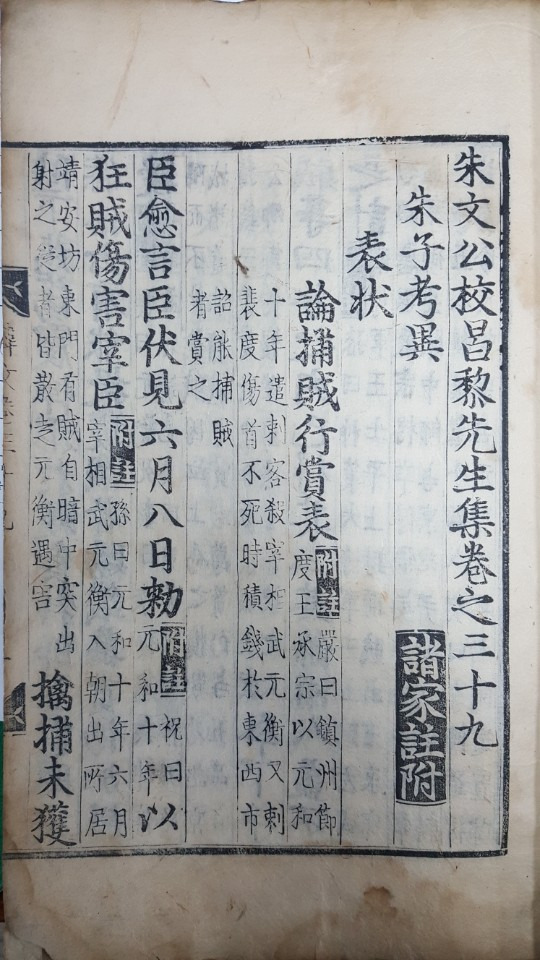 朱文公校昌黎先生集卷之三十九
朱子考異 諸家註附
表状
論捕賊行賞表 附註 嚴曰鎮州節
度王承宗以元和
十年遣刺客殺宰相武元衡又刺
裴度傷首不死時積錢於東西市
詔能捕賊
者賞之
臣愈言臣伏見六月八日勑 附註 祝曰
元和十年 以
狂賊傷害宰臣 附註 孫曰元和十年六月
宰相武元衡入朝出所居
靖安坊東門有賊自暗中突出
射之從者皆散走元衡遇害 擒捕未獲